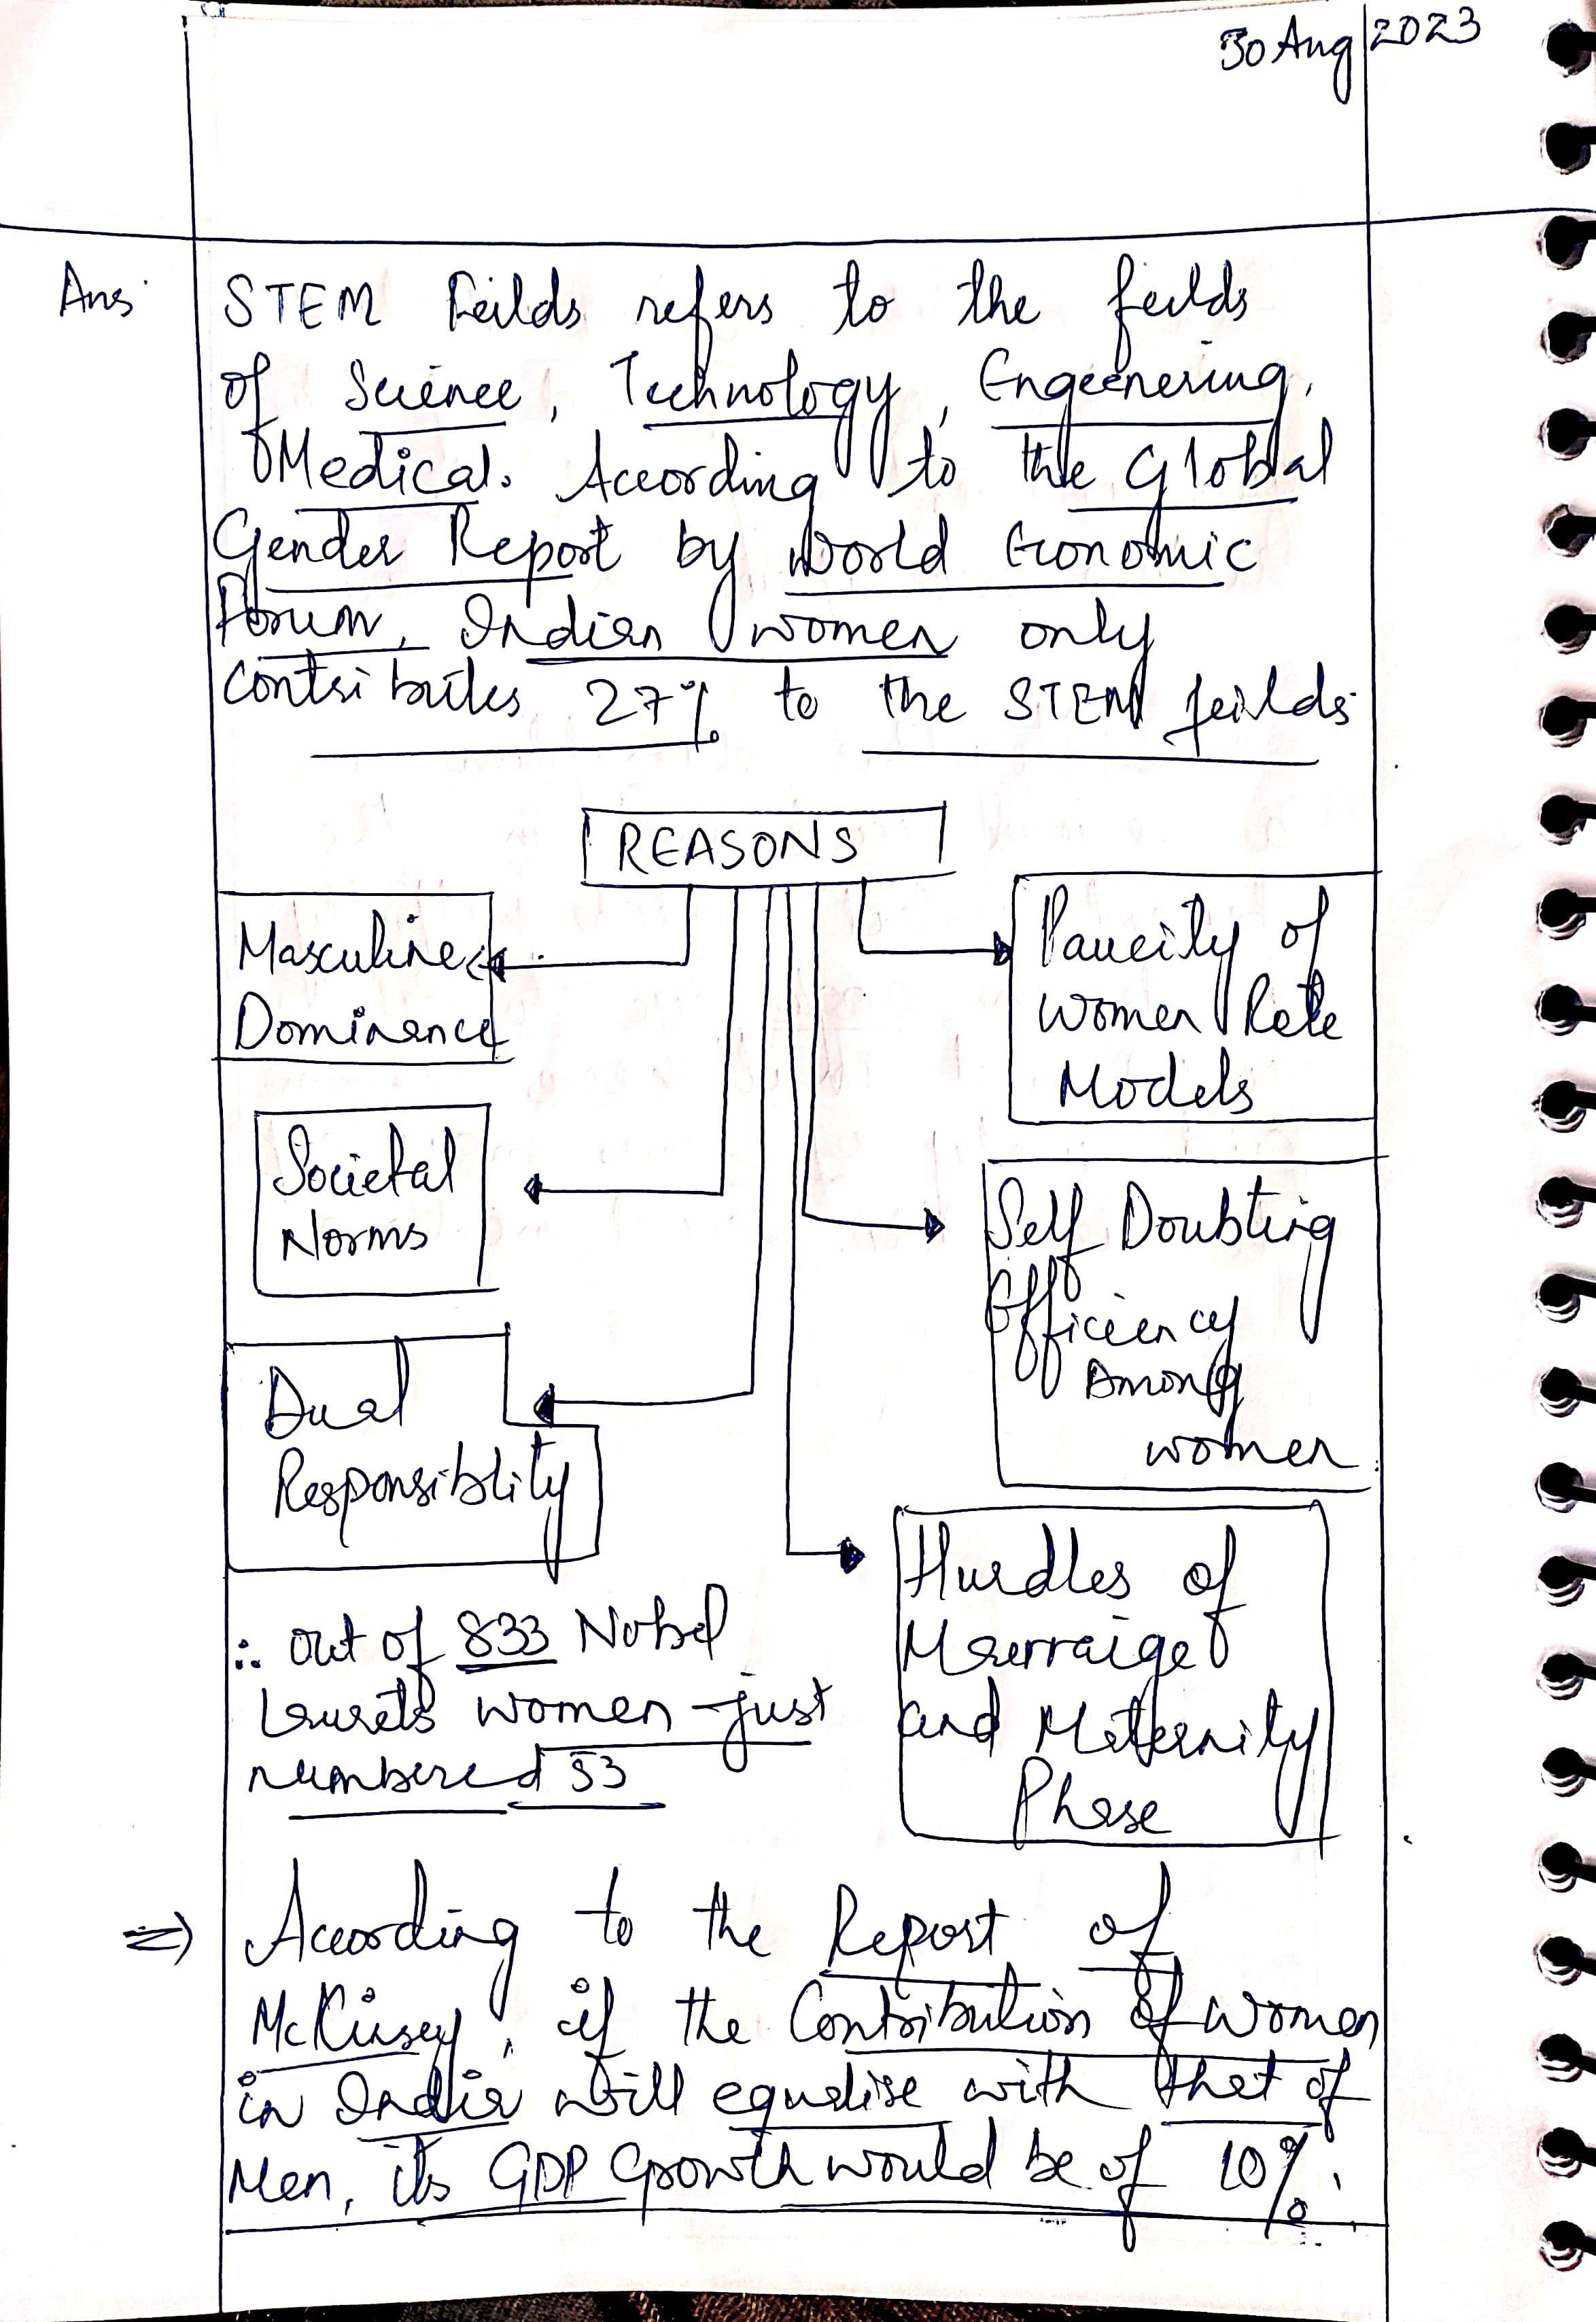 30 Aug 2023
Ans.
STEM Feilds refers to the feilds
of Science, Technology, Engeenering,
Medical. According to the Global
Gender Report by World Economic
Forum, Indian women only
Contributes 27% to the STEM feilds.
REASONS
Masculine
Dominance
Societal
Norms
Dual
Responsiblity
Paucity of
Women Role
Models
Self Doubting
Efficeency
Among
women
Hurdles of
Marraige
and Maternity
Phase
∴ out of 833 Nobel
Laurets women just
numbered 53
⇒ According to the Report of
McKinsey, if the Contribution of women
in India will equalise with that of
Men, its GDP Growth would be of 10%.